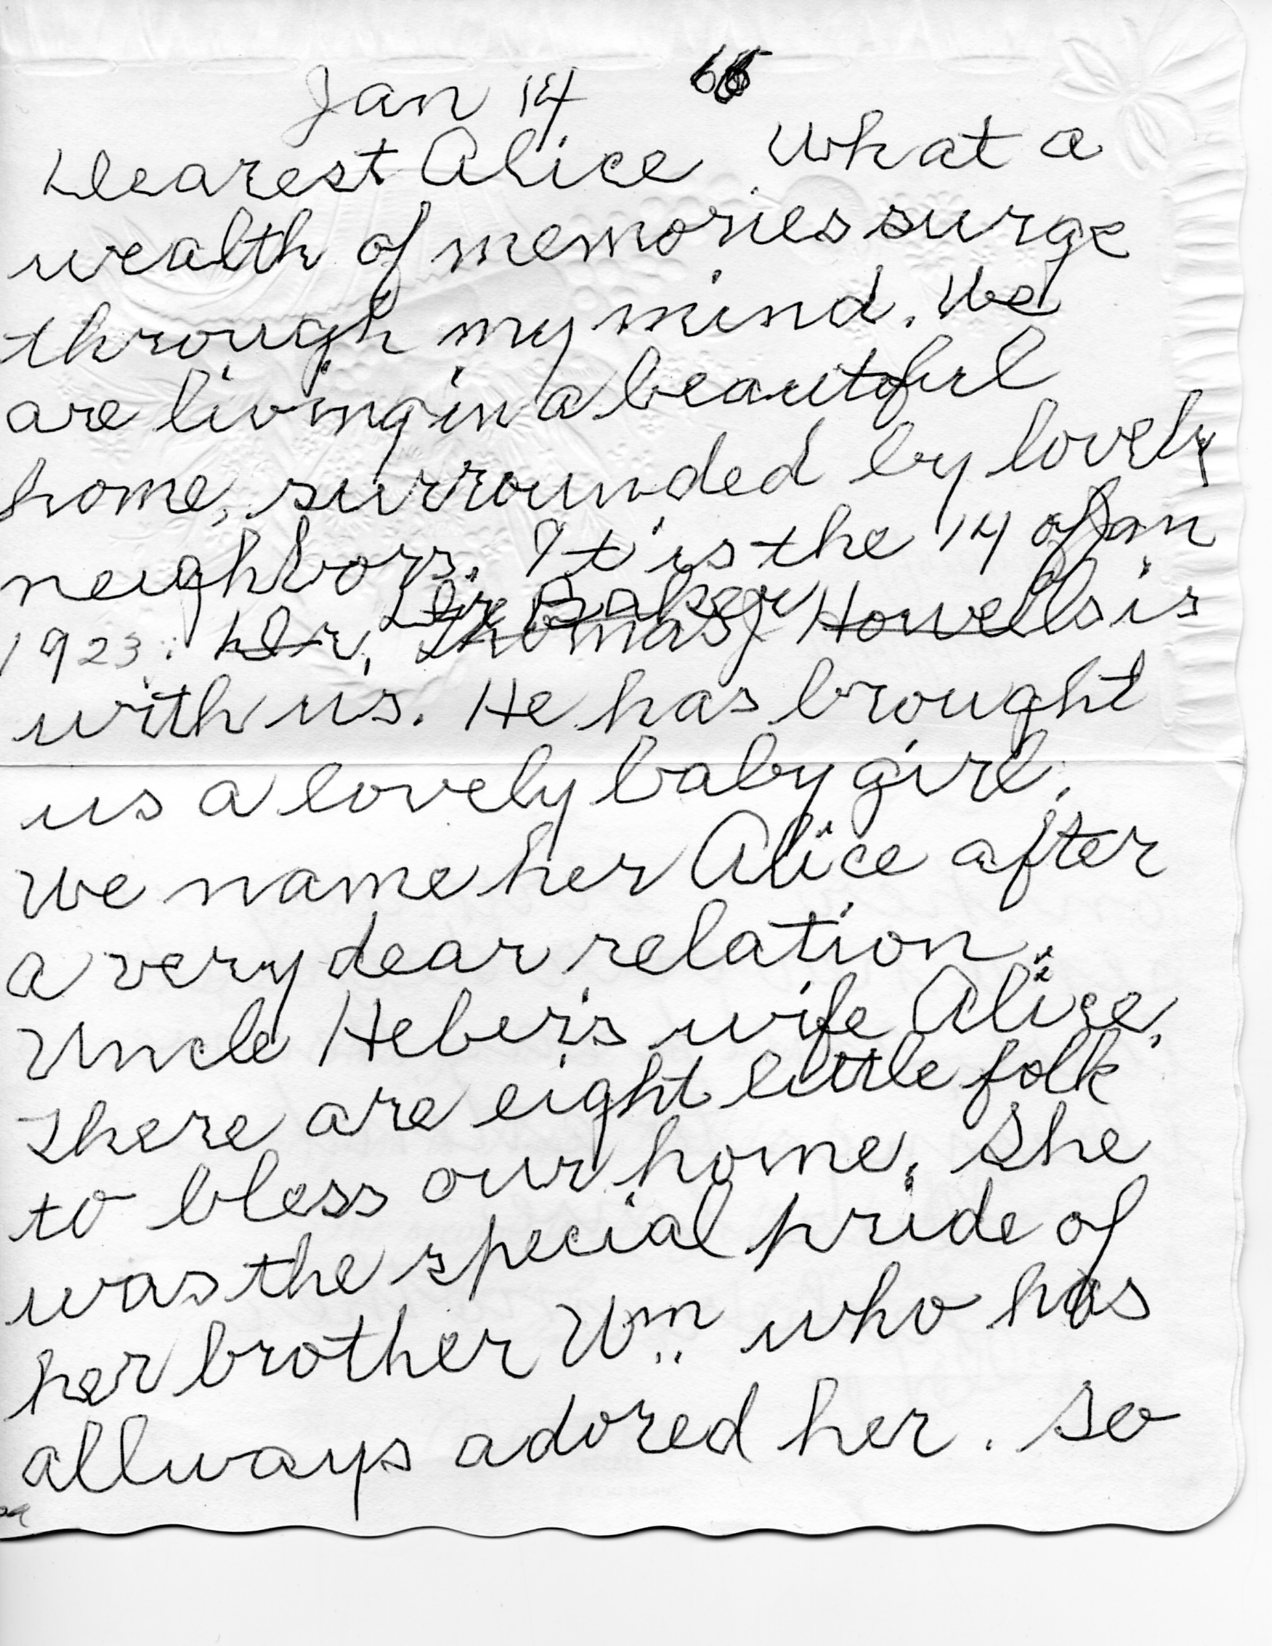 Jan 14 66
Dearest Alice What a
wealth of memories surge
through my mind. We
are living in a beautiful
home, surrounded by lovely
neighbors. It is the 14 of Jan
Dr Baker
1923. her, Thomas J Howells is
with us. He has brought
us a lovely baby girl.
We name her Alice after
a very dear relation.
Uncle Heber's wife Alice.
There are eight little folk
to bless our home. She
was the special pride of
her brother Wm who has
allways adored her. So